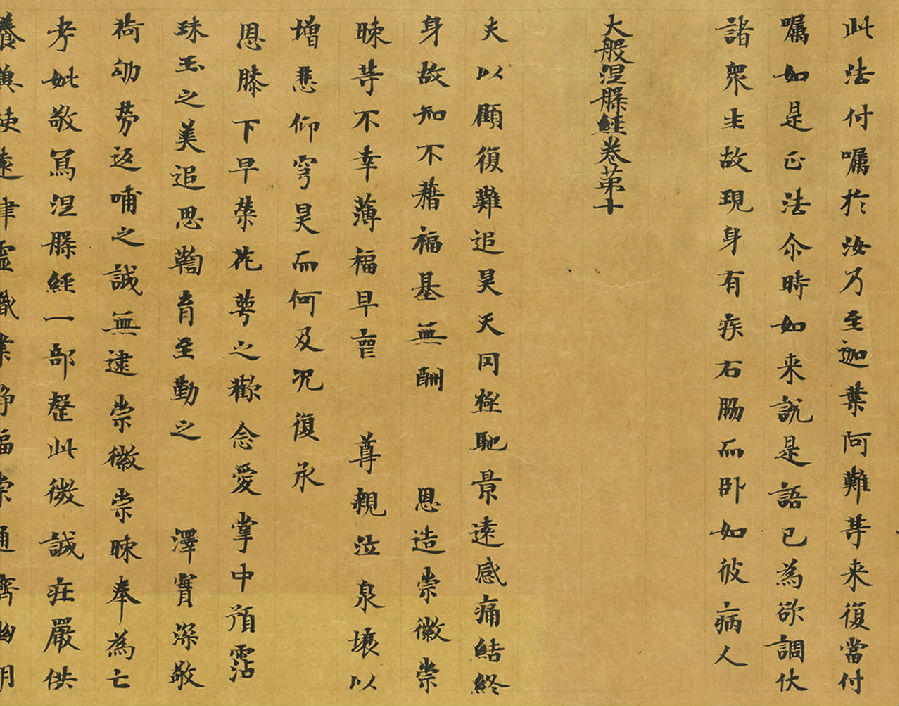 此法付囑於汝乃至迦葉阿難等来復當付
囑如是正法尒時如来說是語已為欲調伏
諸衆生故現身有疾右脇而卧如彼病人
大般涅槃經卷第十
夫以顧復難追昊天罔極馳景遠感痛結終
身故知不藉福基無酬 恩造崇徽崇
暕等不幸薄福早 尊親泣泉壤以
增悲仰穹昊而何及況復承
恩膝下早榮花萼之歡念愛掌中預霑
珠玉之美追思鞠育至勤之 澤實深敬
荷劬勞返哺之誠無逮崇徽崇暕奉為亡
考妣敬寫涅槃經一部罄此微誠在嚴供
養冀使遠津靈識業淨福崇通齊幽明